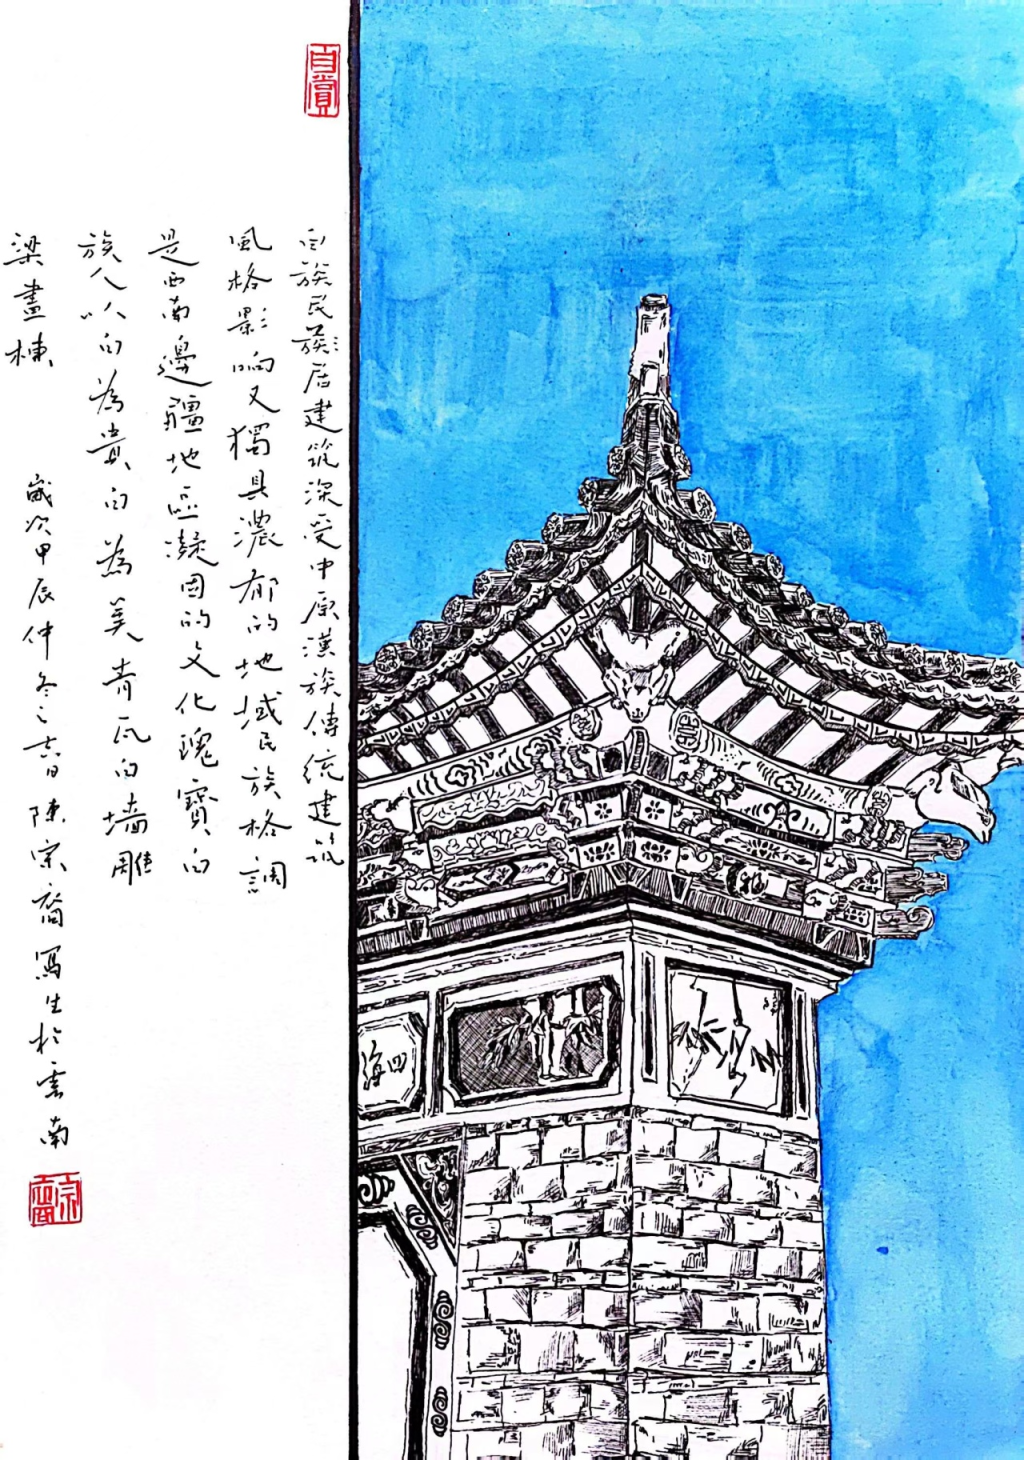 自賞
白族民族居建筑深受中原漢族傳統建筑
風格影响又獨具濃郁的地域民族格調
是西南邊疆地區凝固的文化瑰寶白
族人以白為貴白為美青瓦白墙雕
梁畫棟
歲次甲辰仲冬之吉日陳宗裔寫生於雲南
宗裔
四海